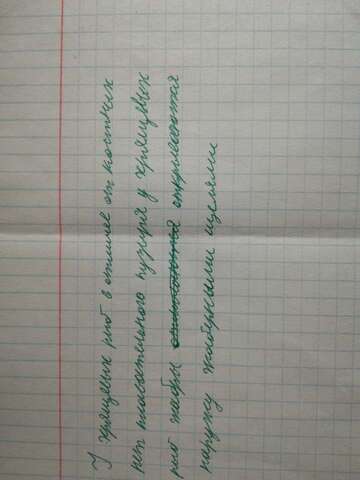 У хрящевых рыб в отличие от костных
нет плавательного пузыря у хрящевых
рыб жабры открываются
наружу жаберными щелями